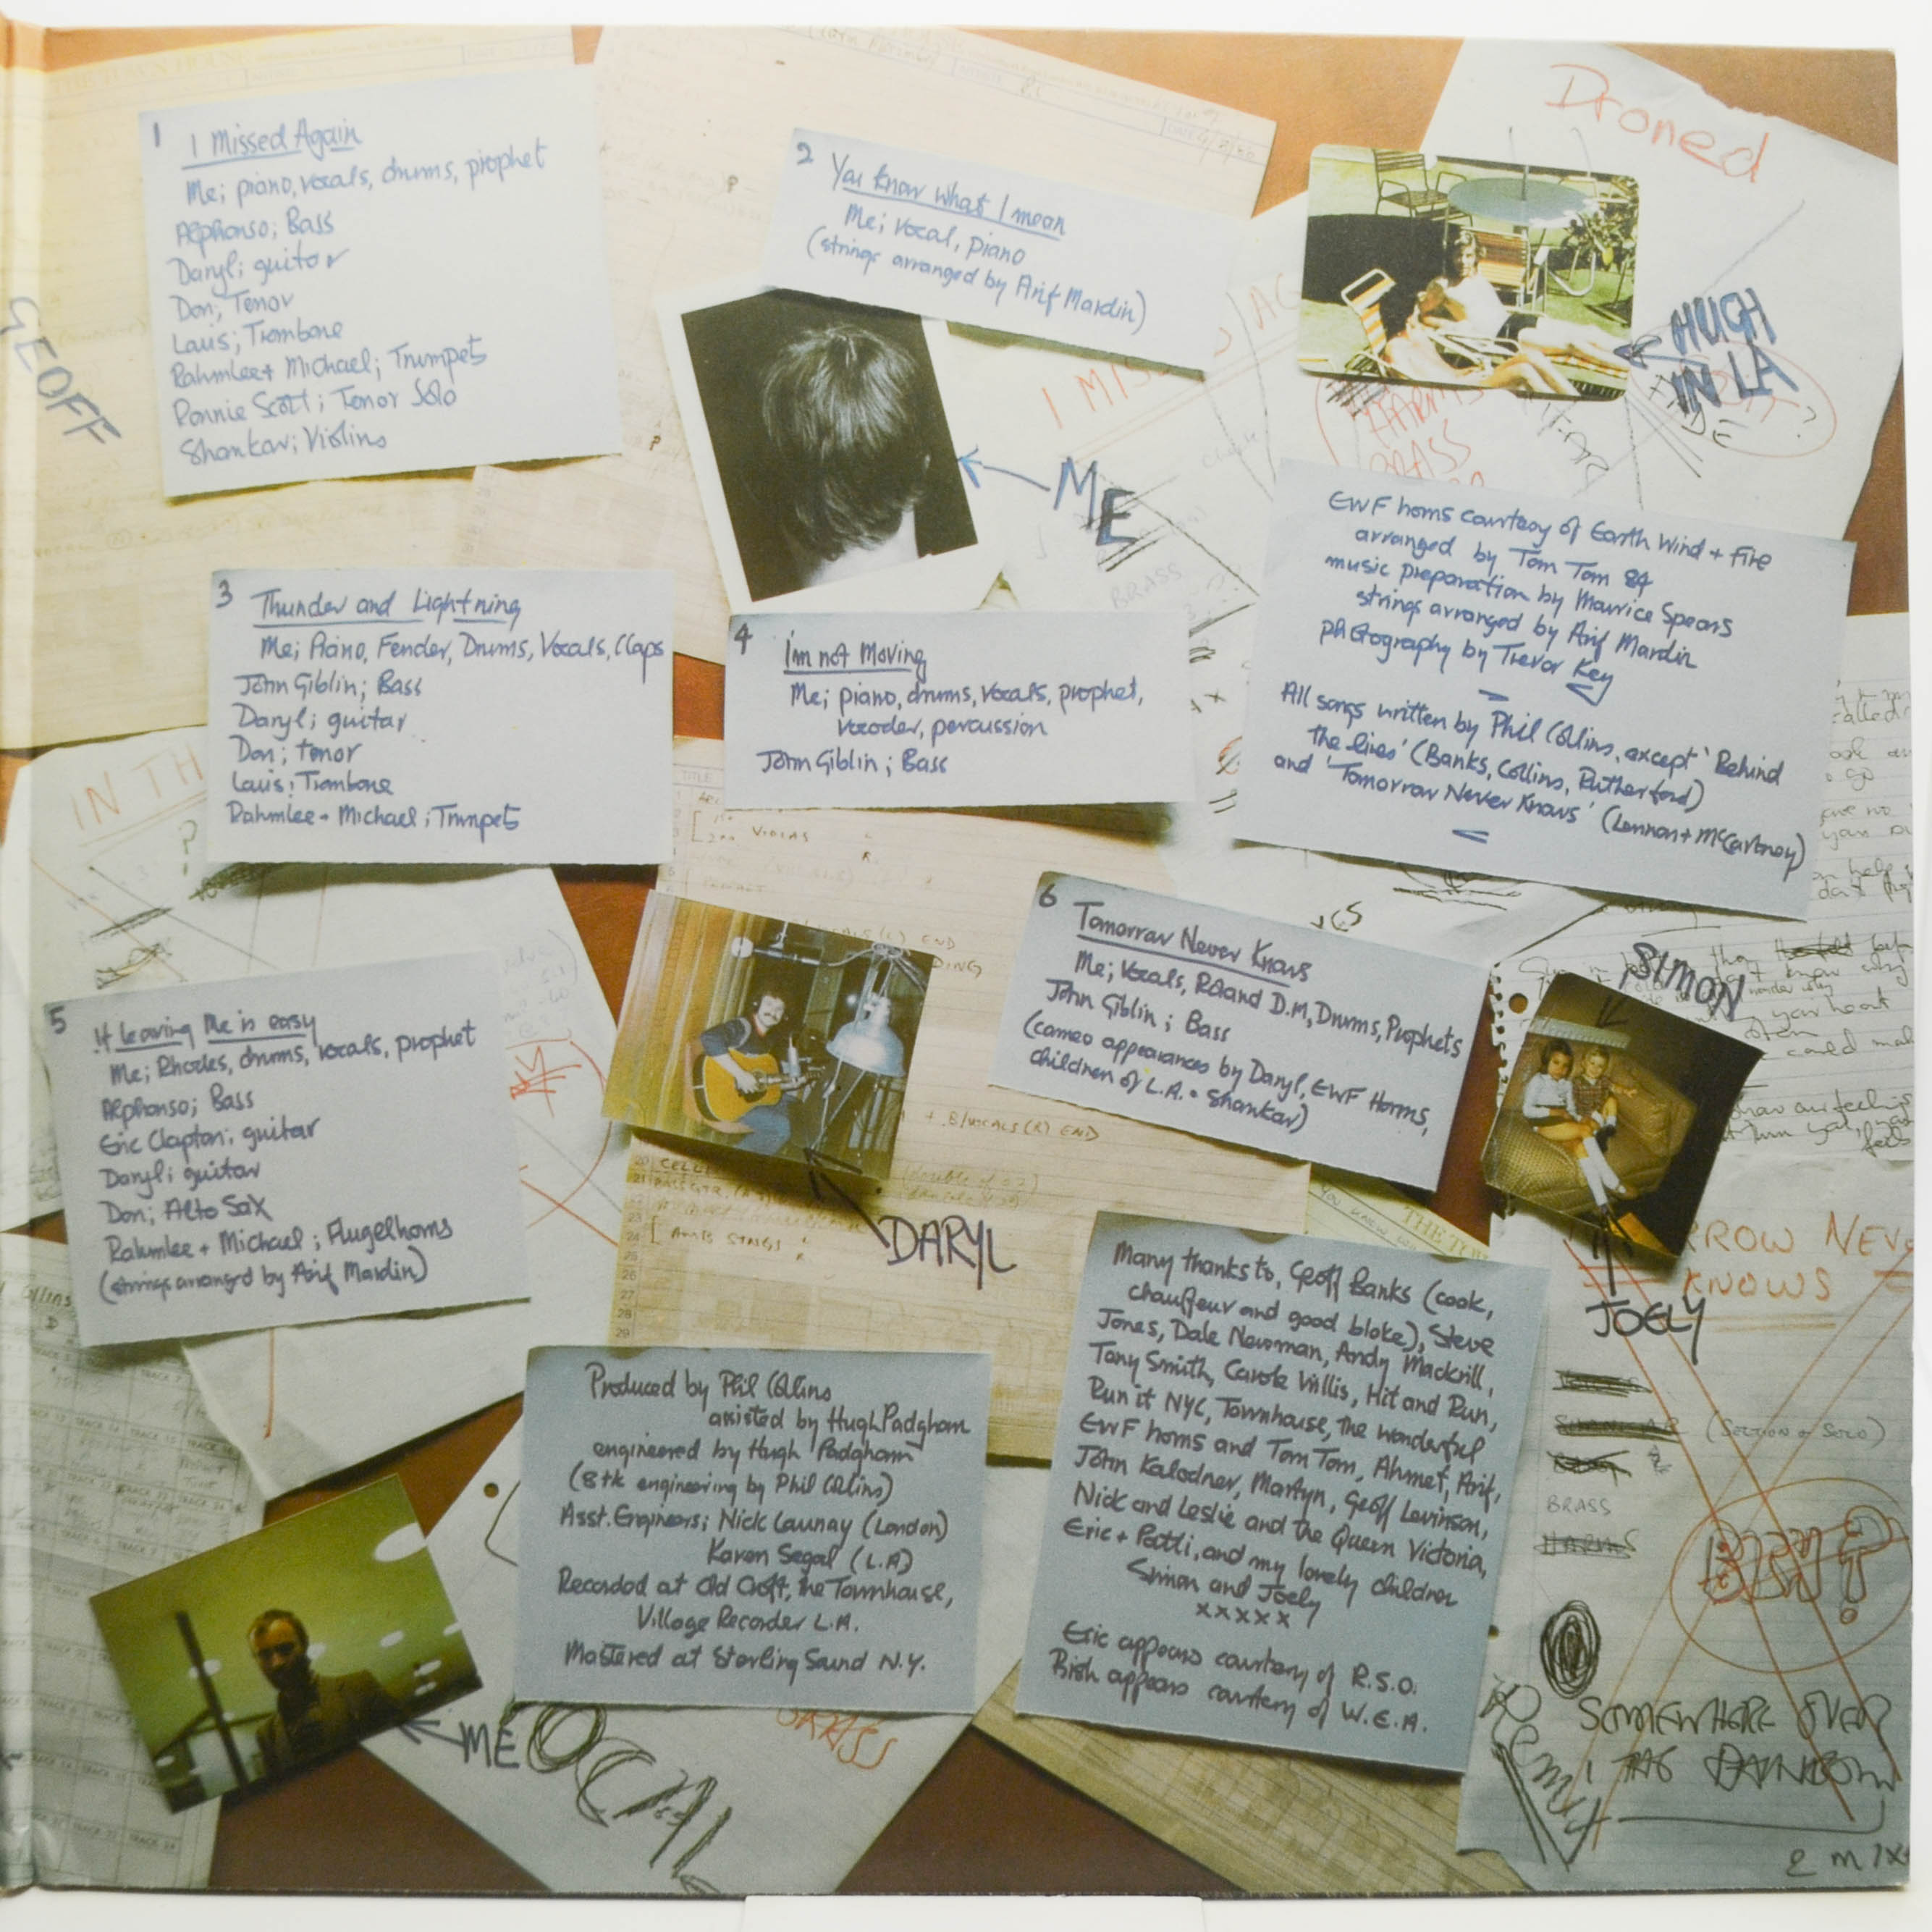 GEOFF
1
I Missed Again
Me; piano, vocals, drums, prophet
Alphonso; Bass
Daryl; guitar
Don; Tenor
Lauis; Trombone
Rahmlee + Michael; Trumpets
Ronnie Scott; Tenor Solo
Shankar; Violins
2
You know what I mean
Me; vocal, piano
(strings arranged by Arif Mardin)
ME
Droned
HUGH
IN LA
I MISS
BRASS
EWF horns courtesy of Earth Wind + Fire
arranged by Tom Tom 84
music preparation by Maurice Spears
strings arranged by Arif Mardin
photography by Trevor Key
All songs written by Phil Collins, except 'Behind
the lines' (Banks, Collins, Rutherford)
and 'Tomorrow Never Knows' (Lennon + McCartney)
3
Thunder and Lightning
Me; Piano, Fender, Drums, Vocals, Claps
John Giblin; Bass
Daryl; guitar
Don; tenor
Lauis; Trombone
Rahmlee + Michael; Trumpets
4
I'm not Moving
Me; piano, drums, vocals, prophet,
vocoder, percussion
John Giblin; Bass
IN TH
VIOLAS
5
If leaving Me is easy
Me; Rhodes, drums, vocals, prophet
Alphonso; Bass
Eric Clapton; guitar
Daryl; guitar
Don; Alto Sax
Rahmlee + Michael; Flugelhorns
(strings arranged by Arif Mardin)
DARYL
6
Tomorrow Never Knows
Me; Vocals, Roland D.M, Drums, Prophets
John Giblin; Bass
(cameo appearances by Daryl, EWF Horns,
children of L.A. + Shankar)
SIMON
JOELY
+ B/VOCALS (R) END
Produced by Phil Collins
assisted by Hugh Padgham
engineered by Hugh Padgham
(8tk engineering by Phil Collins)
Asst. Engineers; Nick Launay (London)
Karen Segal (L.A)
Recorded at Old Croft, the Townhouse,
Village Recorder L.A.
Mastered at Sterling Sound N.Y.
Many thanks to, Geoff Banks (cook,
chauffeur and good bloke), Steve
Jones, Dale Newman, Andy Mackrill,
Tony Smith, Carole Willis, Hit and Run,
Run it NYC, Townhouse, the wonderful
EWF horns and Tom Tom, Ahmet, Arif,
John Kalodner, Martyn, Geoff Levinson,
Nick and Leslie and the Queen Victoria,
Eric + Patti, and my lovely children
Simon and Joely
xxxxx
Eric appears courtesy of R.S.O.
Bish appears courtesy of W.E.A.
ME
BRASS
RROW NEV
KNOWS
(SECTION + SOLO)
BRASS
BISH?
SOMEWHERE OVER
THE RAINBOW
2 MIX